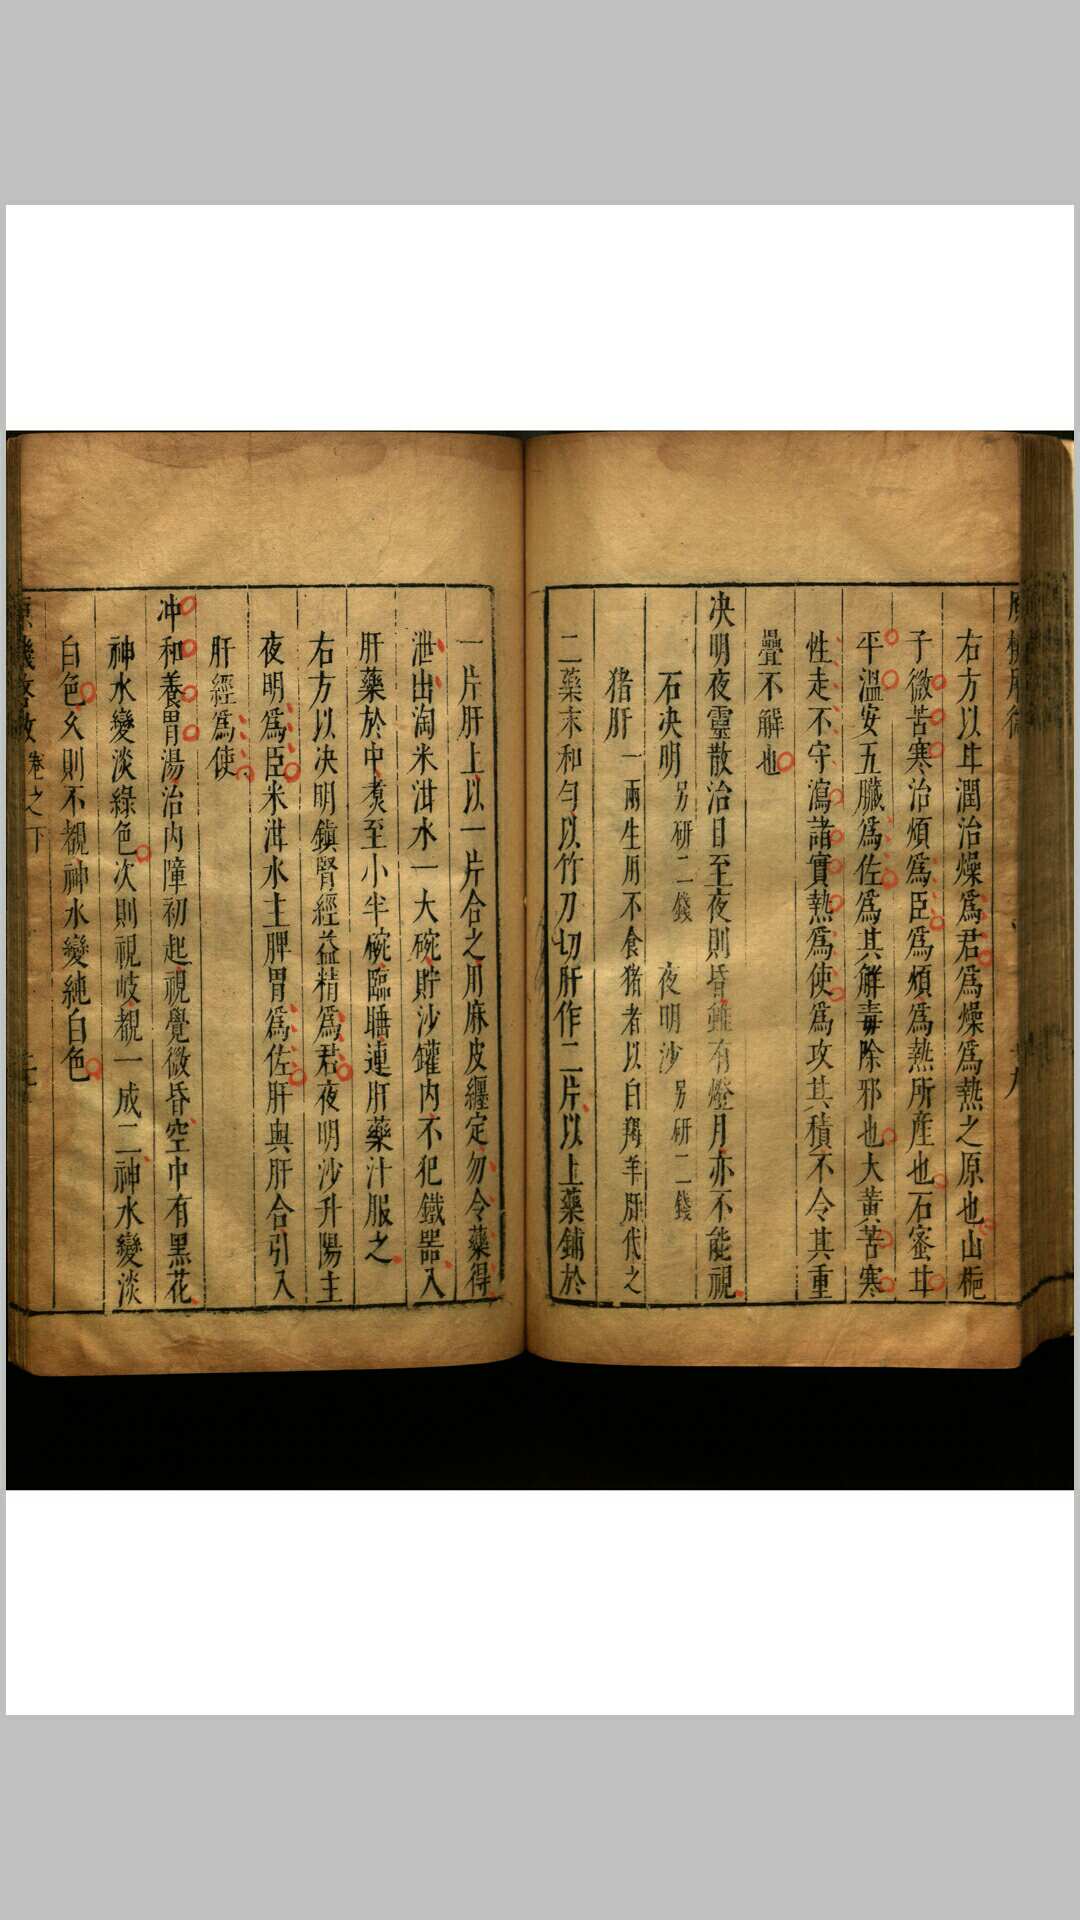 右方以甘潤治燥爲君爲燥爲熱之原也山梔
子微苦寒治煩爲臣爲煩爲熱所產也石蜜甘
平溫安五臟爲佐爲其解毒除邪也大黃苦寒
性走不守瀉諸實熱爲使爲攻其積不令其重
疊不解也
决明夜靈散治目至夜則昏雖有燈月亦不能視
石决明另研二錢 夜明沙另研二錢
猪肝一兩生用不食猪者以白羯羊肝代之
二藥末和勻以竹刀切肝作二片以上藥鋪於
一片肝上以一片合之用麻皮纏定勿令藥得
泄出淘米泔水一大碗貯沙罐內不犯鐵器入
肝藥於中煑至小半碗臨睡連肝藥汁服之
右方以决明鎮腎經益精爲君夜明沙升陽主
夜明爲臣米泔水主脾胃爲佐肝與肝合引入
肝經爲使
冲和養胃湯治內障初起視覺微昏空中有黑花
神水變淡綠色次則視岐覩一成二神水變淡
白色久則不覩神水變純白色
卷之下